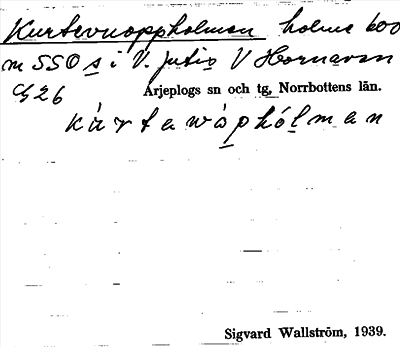 Kurtevuoppholmen holme 600
m SSO s i V. Jutis V Hornavan
Arjeplogs sn och tg, Norrbottens län.
kùrtawàphólman
Sigvard Wallström, 1939.